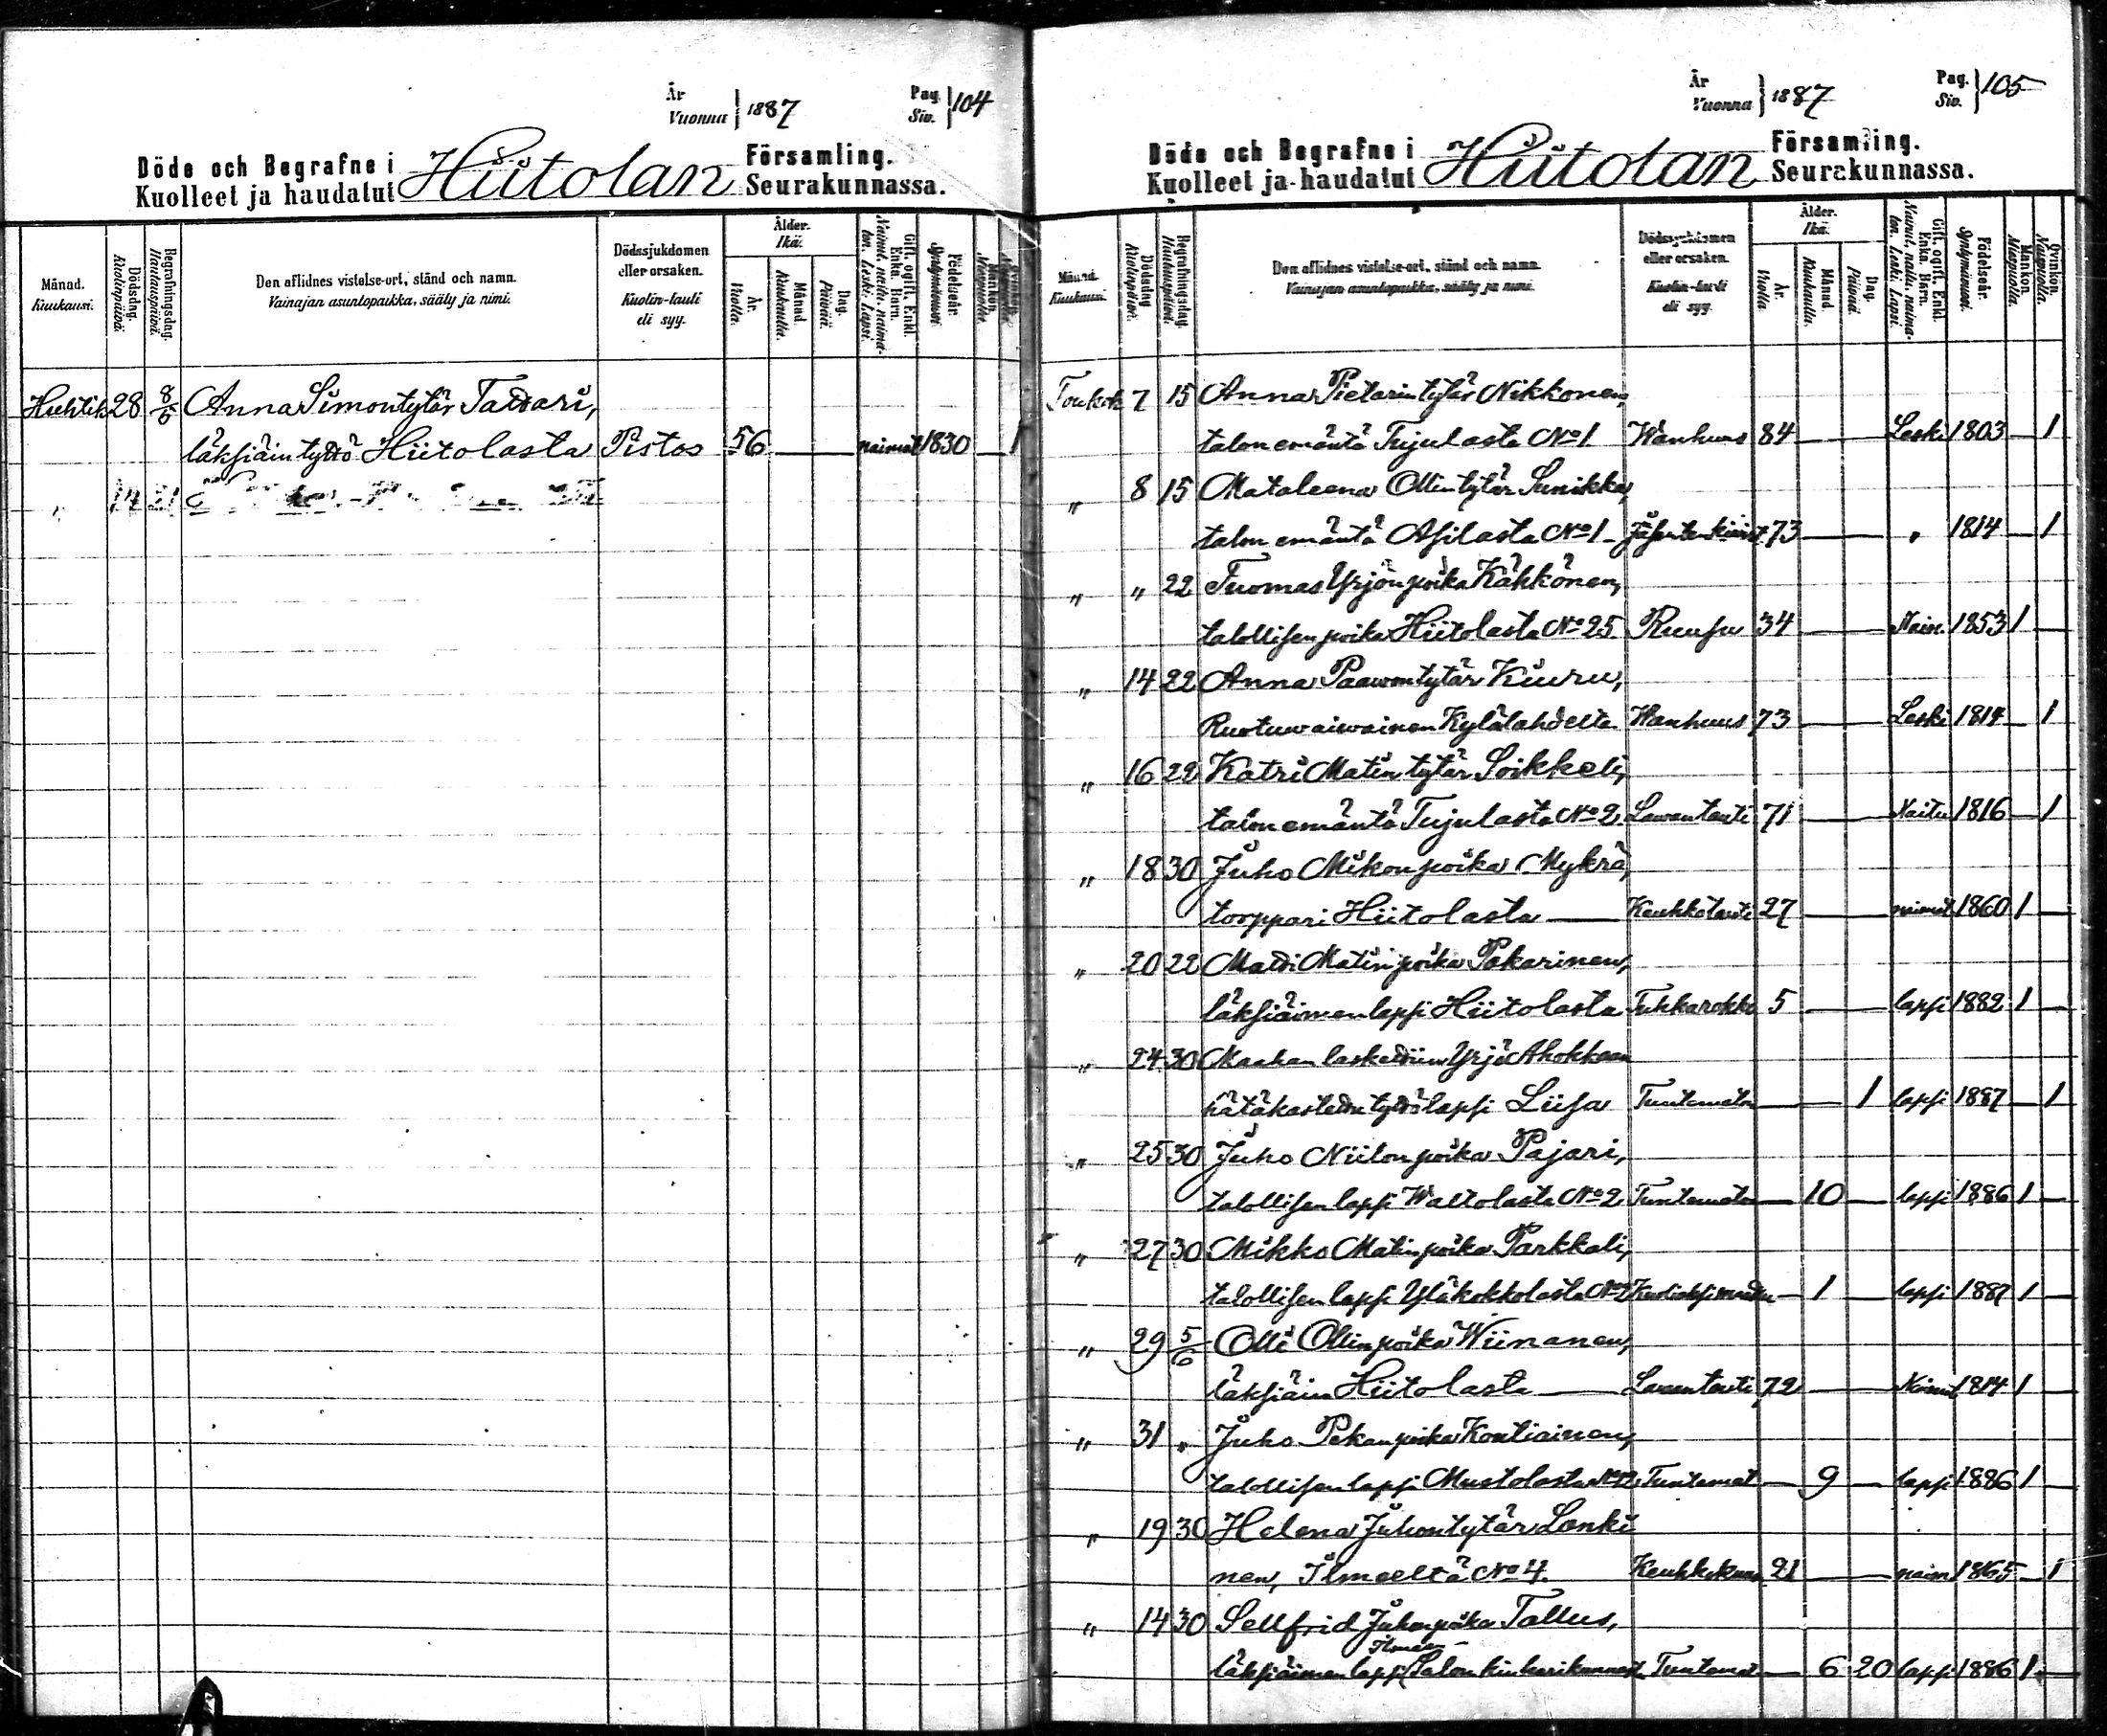 År
Vuonna } 1887
Pag.
Siv. } 104
Döde och Begrafne i Hiitolan Församling.
Kuolleet ja haudatut Seurakunnassa.
Månad.
Kuukausi.
Dödsdag.
Kuolinpäivä.
Begrafningsdag.
Hautauspäivä.
Den aflidnes vistelse-ort, stånd och namn.
Vainajan asuntopaikka, sääty ja nimi.
Dödssjukdomen
eller orsaken.
Kuolin-tauti
eli syy.
Ålder.
Ikä.
År.
Vuotta.
Månad.
Kuukautta.
Dag.
Päivää.
Gift, ogift, Enkl.
Enka, Barn.
Nainut, naitu, naima-
ton, Leski, Lapsi.
Födelseår.
Syntymävuosi.
Mankön.
Miespuolia.
Qvinkön.
Naispuolia.
Huhtik 28 8/5 Anna Simontytär Tattari,
läksiäin tyttö Hiitolasta Pistos 56 naimat 1830 1
" 14 21
År
Vuonna } 1887
Pag.
Siv. } 105
Döde och Begrafne i Hiitolan Församling.
Kuolleet ja haudatut Seurakunnassa.
Månad.
Kuukausi.
Dödsdag.
Kuolinpäivä.
Begrafningsdag.
Hautauspäivä.
Den aflidnes vistelse-ort, stånd och namn.
Vainajan asuntopaikka, sääty ja nimi.
Dödssjukdomen
eller orsaken.
Kuolin-tauti
eli syy.
Ålder.
Ikä.
År.
Vuotta.
Månad.
Kuukautta.
Dag.
Päivää.
Gift, ogift, Enkl.
Enka, Barn.
Nainut, naitu, naima-
ton, Leski, Lapsi.
Födelseår.
Syntymävuosi.
Mankön.
Miespuolia.
Qvinkön.
Naispuolia.
Toukok 7 15 Anna Pietarintytär Nikkonen,
talon emäntä Tiujulasta No 1 Wanhuus 84 Leski 1803 1
" 8 15 Mataleena Ollintytär Sunikka,
talon emäntä Asilasta No 1 73 " 1814 1
" " 22 Tuomas Yrjön poika Kähkönen,
talollisen poika Hiitolasta No 25. Ruusu 34 Nain. 1853 1
" 14 22 Anna Paavontytär Kiuru,
Ruotuwaiwainen Kylälahdelta Wanhuus 73 Leski 1814 1
" 16 22 Katri Matin tytär Soikkeli,
talon emäntä Tiujulasta No 2. Lawantauti 71 Naitu 1816 1
" 18 30 Juho Mikonpoika Mykrä,
torppari Hiitolasta Keuhkotauti 27 naimat 1860 1
" 20 22 Matti Matin poika Pakarinen,
läksiäimen lapsi Hiitolasta Tuhkarokko 5 lapsi 1882 1
" 24 30 Maahan laskettiin Yrjö Ahokkaan
hätäkastettu tyttölapsi Liisa Tuntematon 1 lapsi 1887 1
" 25 30 Juho Niilon poika Pajari,
talollisen lapsi Waltolasta No 2 Tuntematon 10 lapsi 1886 1
" 27 30 Mikko Matin poika Parkkali,
talollisen lapsi Yläkokkolasta No 1 lapsi 1887 1
" 29 5/6 Olli Ollin poika Wiinanen,
läksiäin Hiitolasta Lawantauti 72 Nainut 1814 1
" 31 " Juho Pekan poika Kontiainen,
talollisen lapsi Mustolasta No 2 Tuntemat 9 lapsi 1886 1
" 19 30 Helena Juhontytär Lonki
nen, Ilmeeltä No 4. 21 naim 1865 1
" 14 30 Sellfrid Juhonpoika Tallus,
Ilmeen
läksiäimen lapsi Salon kinkerikunnast Tuntemat 6 20 lapsi 1886 1